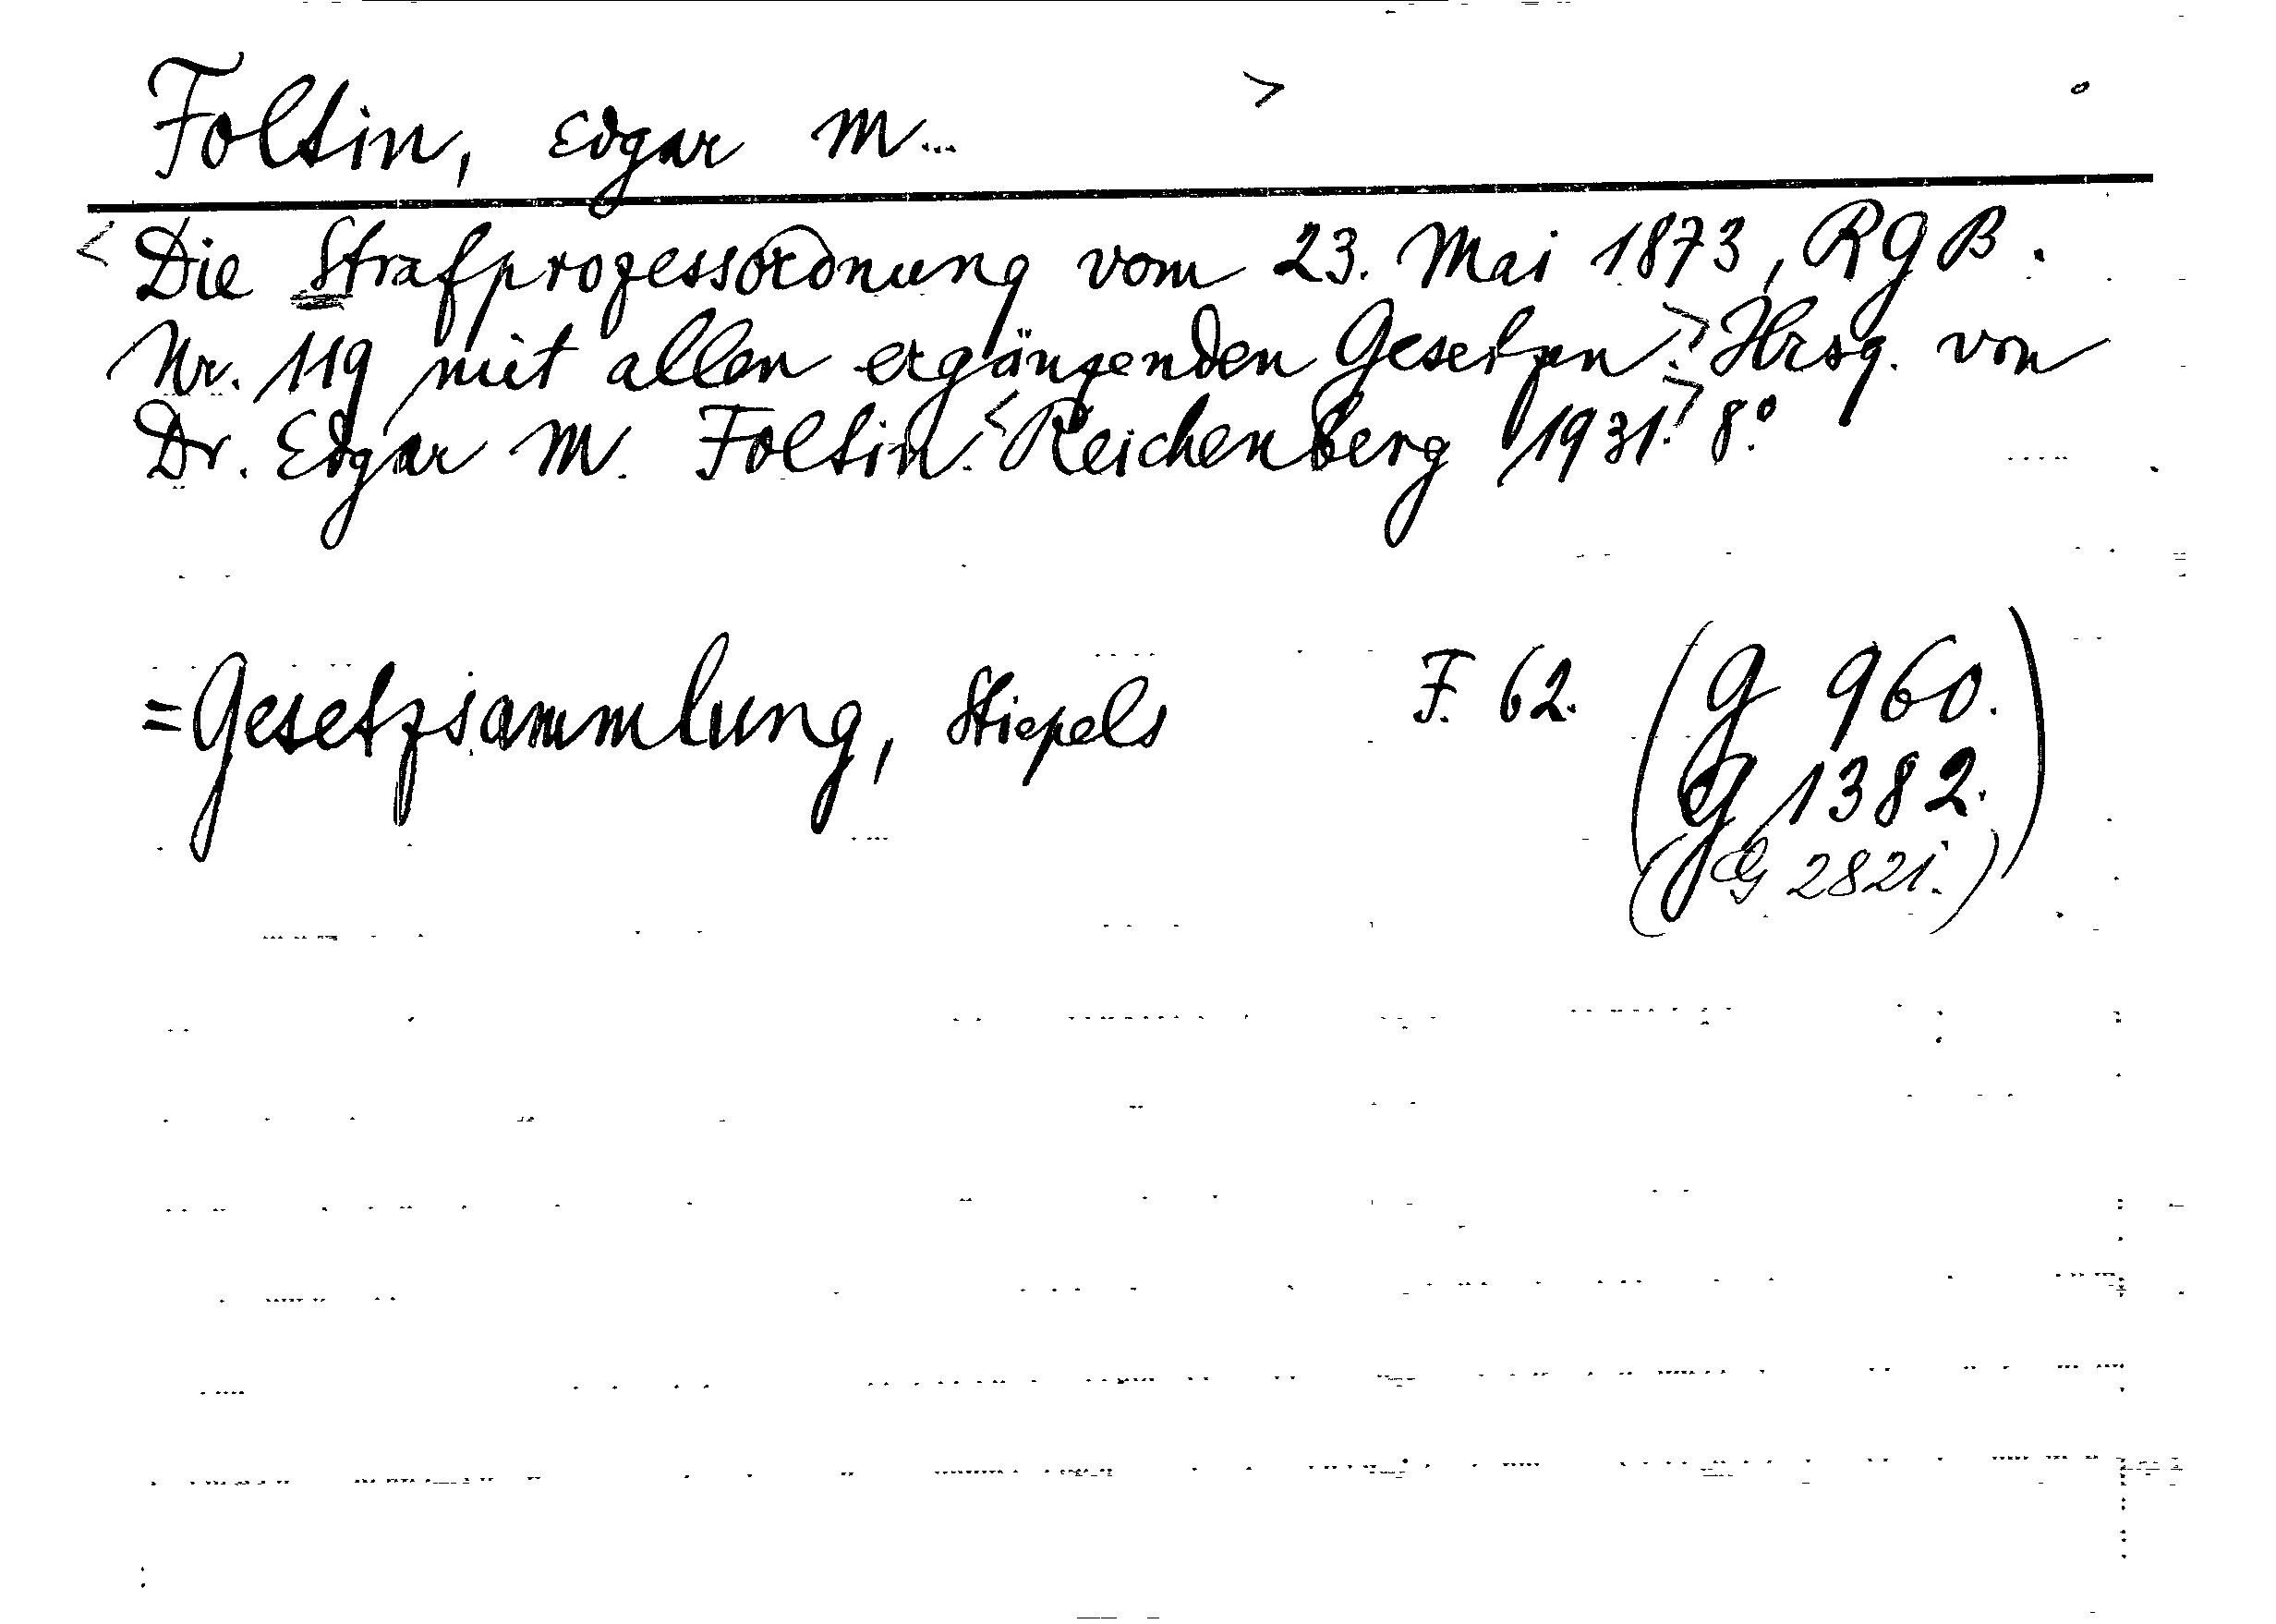 Foltin, Edgar M... > o
< Die Strafprozessordnung vom 23. Mai 1873, RGB.
Nr. 119 mit allen ergänzenden Gesetzen.> Hrsg. von
Dr. Edgar M. Foltin.< Reichenberg 1931.> 8.°
= Gesetzsammlung, Stiepels F. 62. (G 960.
G 1382.)
(G 2821.)